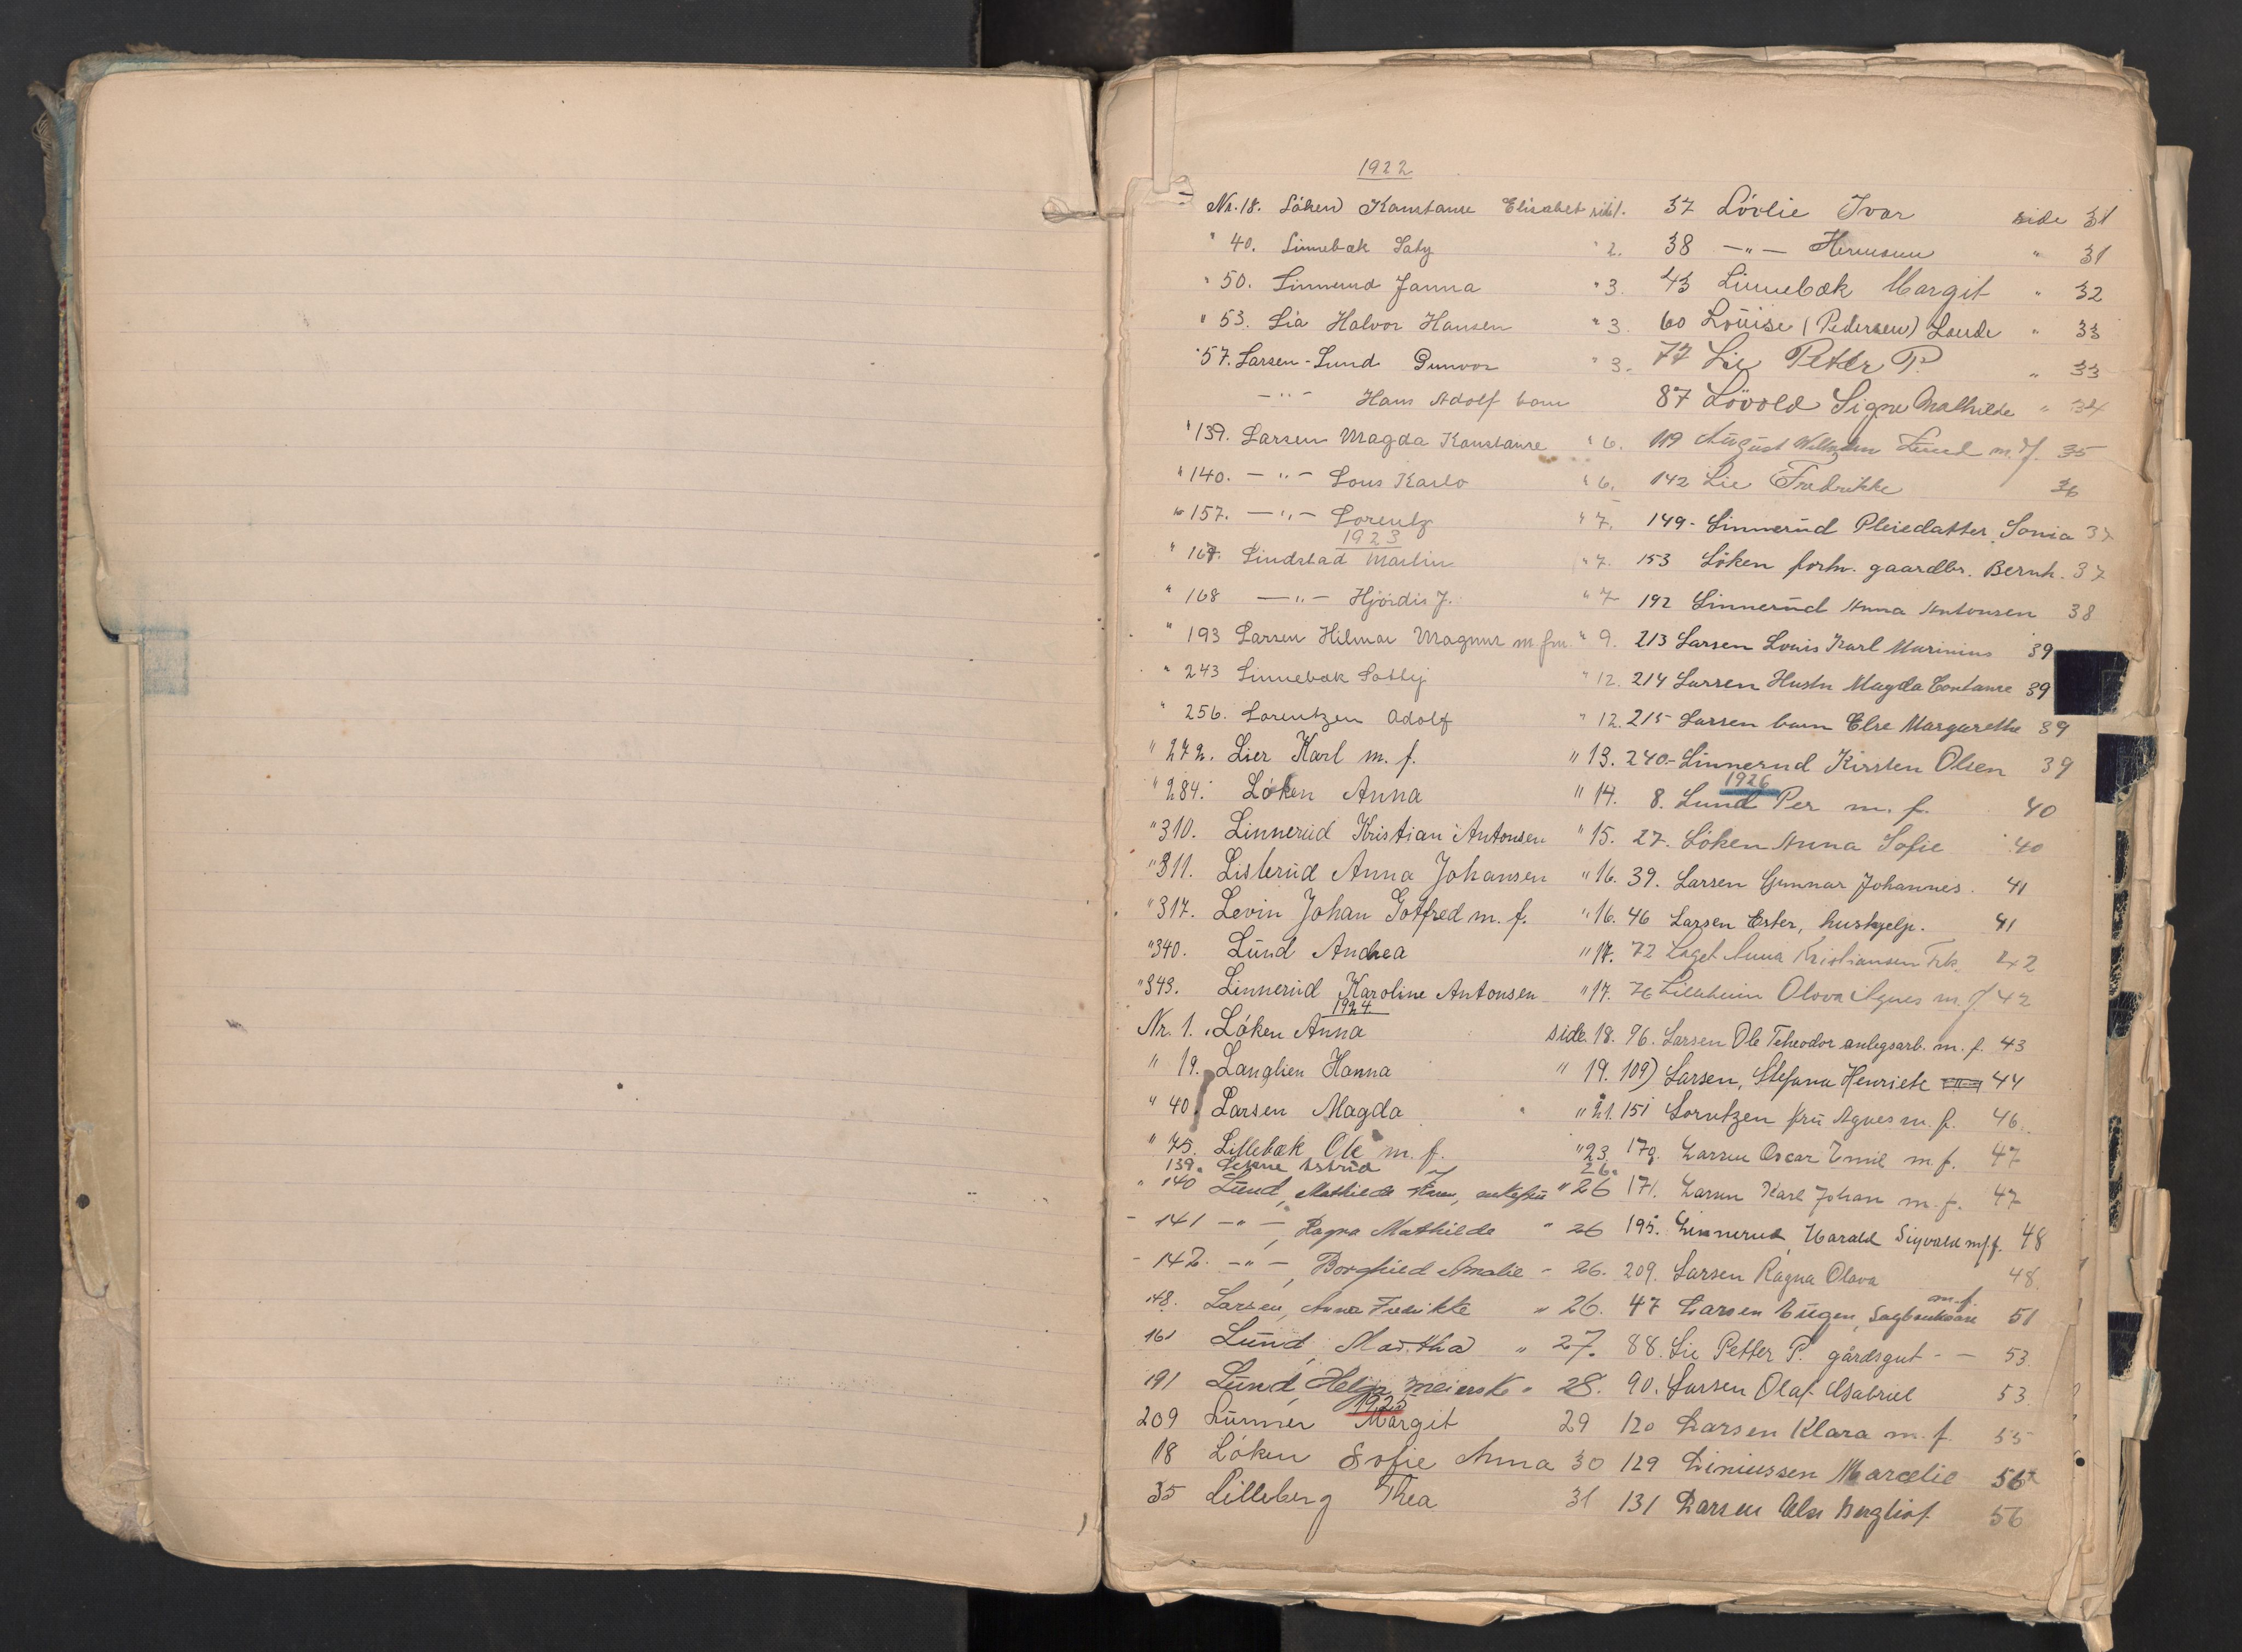 1922
Nr. 18. Löken Konstanse Elisabet side 1.
" 40. Linnebæk Saly " 2.
" 50. Linnerud Janna " 3.
" 53. Lia Halvor Hansen " 3.
" 57. Larsen-Lund Gunvor " 3.
— " — Hans Adolf barn
" 139. Larsen Magda Konstanse " 6.
" 140. — " — Lous Karlo " 6.
" 157. — " — Lorentz " 7.
1923
" 167. Lindstad Martin " 7.
" 168 — " — Hjördis J. " 7
" 193 Larsen Hilmar Magnus m. fm. " 9.
" 243 Linnebæk " 12.
" 256. Lorentzen Adolf " 12.
" 272. Lier Karl m. f. " 13.
" 284. Löken Anna " 14.
" 310. Linnerud Kristian Antonsen " 15.
" 311. Listerud Anna Johansen " 16.
" 317. Levin Johan Gotfred m. f. " 16.
" 340. Lund Andrea " 17.
" 343. Linnerud Karoline Antonsen " 17.
1924
Nr. 1. Löken Anna side 18.
" 19. Langlien Hanna " 19.
" 40. Larsen Magda " 21.
" 75. Lillebæk Ole m. f. " 23.
139. Astrid 26.
" 140 Lund, Mathilde enkefru " 26
- 141 — " — , Ragna Mathilde " 26
- 142. — " — , Borghild Amalie - 26.
148. Larsen, Anna Fredrikke " 26.
161 Lund, Martha " 27.
191 Lund, Helga meierske " 28.
1925
209 Lunner Margit 29
18 Löken Sofie Anna 30
35 Lilleberg Thea 31
37 Lövlie Ivar side 31
38 — " — Hermann " 31
43 Linnebæk Margit " 32
60 Louise (Pedersen) Lunde " 33
77 Lie Petter P. " 33
87 Lövold Signe Mathilde " 34
119 August Wilhelm Lund m. f. 35
142 Lie Fredrikke 36
149 - Linnerud Pleiedatter, Sonia 37
153 Löken forhv. gaardbr. Bernh. 37
192 Linnerud Anna Antonsen 38
213 Larsen Louis Karl Marinius 39
214 Larsen Hustr Magda Contanse 39
215 Larsen barn Else Margarethe 39
240 - Linnerud Kirsten Olsen 39
1926
8. Lund Per m. f. 40
27. Löken Anna Sofie 40
39. Larsen Gunnar Johannes. 41
46 Larsen Ester, hushjelp. 41
72 Laget Anna Kristiansen Frk. 42
76 Lilleheim Olova Agnes m. f. 42
96. Larsen Ole Theodor anlegsarb. m. f. 43
109) Larsen, Stefana Henriete 44
151 Lorntzen fru Agnes m. f. 46.
170. Larsen Oscar Emil m. f. 47
171. Larsen Karl Johan m. f. 47
195. Linnerud, Harald Sigvald m/f. 48
209. Larsen Ragna Olava 48.
47 Larsen Eugen, m. f. 51
88. Lie Petter P. gårdsgut - — 53.
90. Larsen Olaf Gabriel 53
120 Larsen Klara m. f. 55
129 Liniussen Marcelie 56
131 Larsen Else Bergliot 56